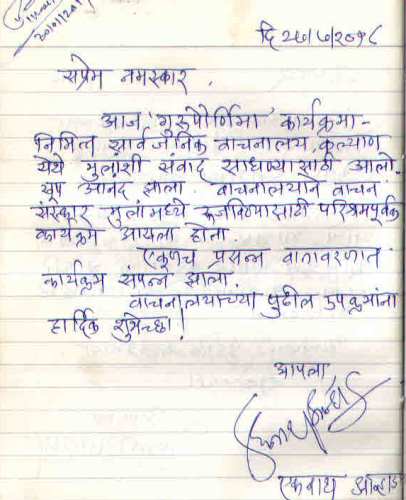 दि २७/७/२०१८
सप्रेम नमस्कार.
आज 'गुरुपौर्णिमा' कार्यक्रमा-
निमित्त सार्वजनिक वाचनालय, कल्याण
येथे मुलांशी संवाद साधण्यासाठी आलो.
खूप आनंद झाला. वाचनालयाने वाचन
संस्कार मुलांमध्ये रूजविण्यासाठी परिश्रमपूर्वक
कार्यक्रम आयला होता.
एकूणच प्रसन्न वातावरणात
कार्यक्रम संपन्न झाला.
वाचनालयाच्या पुढील उपक्रमांना
हार्दिक शुभेच्छा!
आपला
एकनाथ आव्हाड